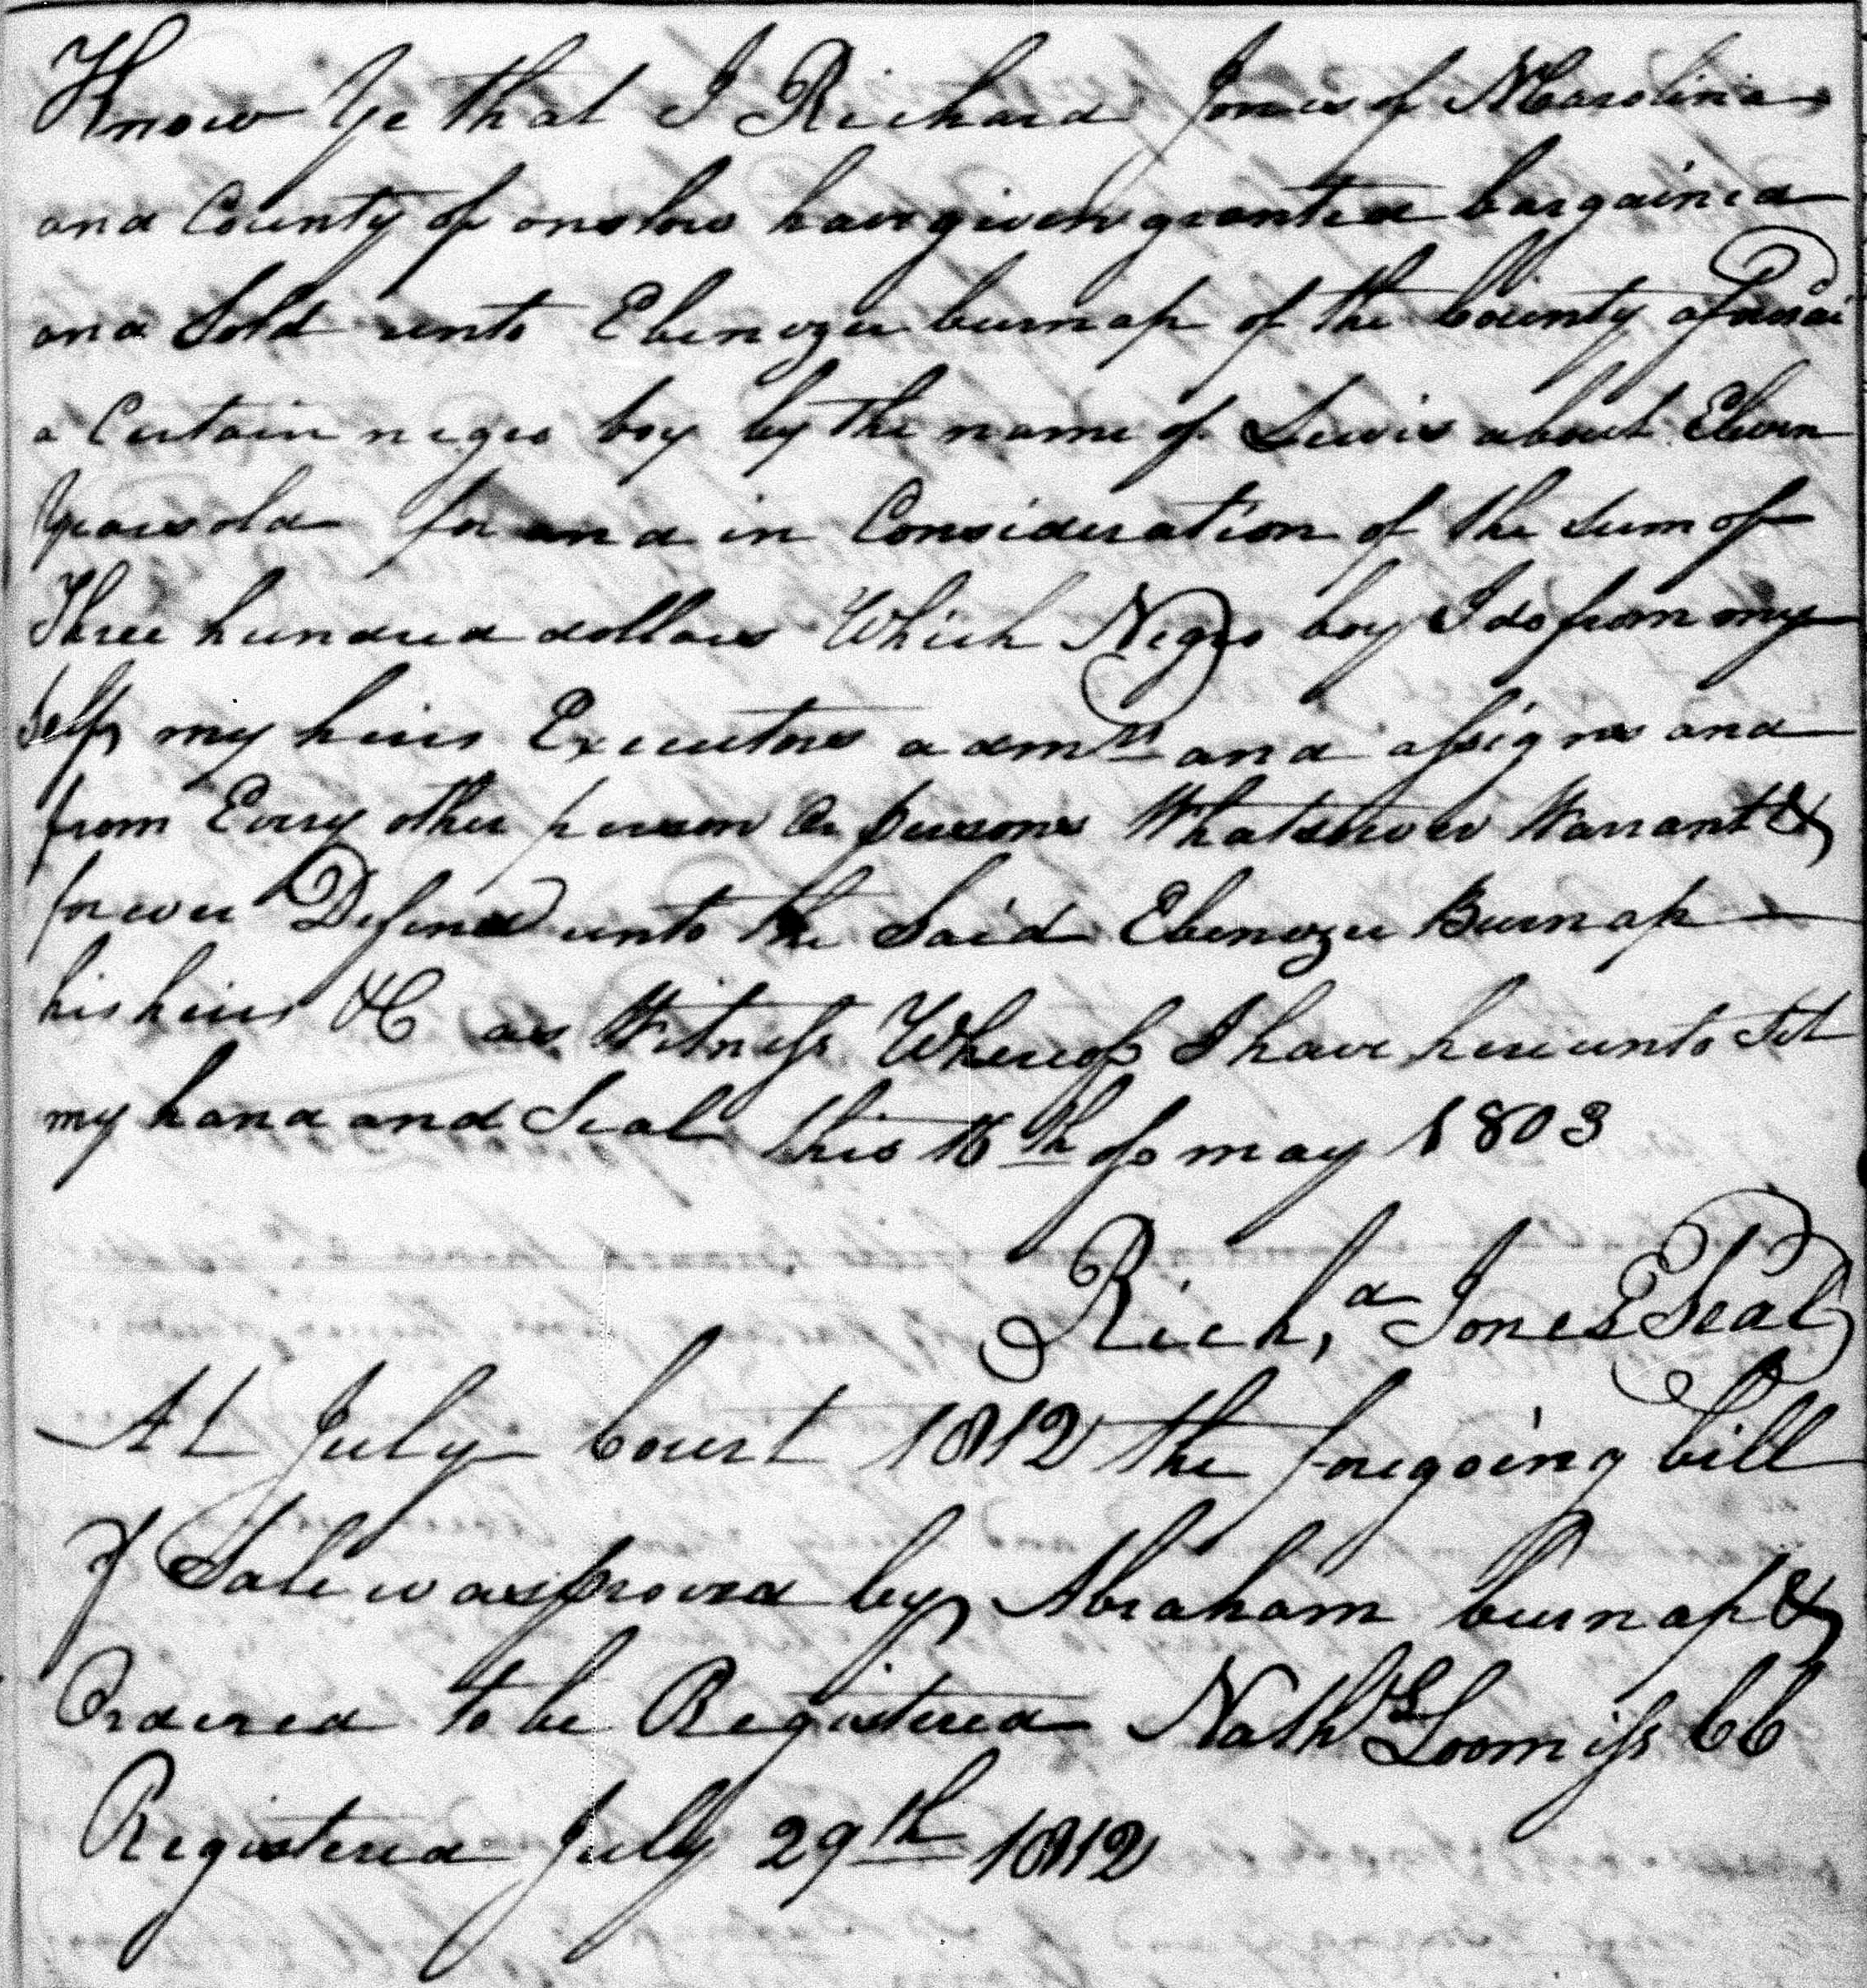 Know Ye that I Richard Jones of N Carolina
and County of onslow have given granted bargained
and Sold unto Ebenezer burnap of the County afores.
a Certain negro boy by the name of Lewis about Eleven
Years old for and in Consideration of the Sum of
Three hundred dollars Which Negro boy I do from my
Self my heirs Executors admrs and assigns and
from Every other person Or persons Whatsoever Warrant &
forever Defend unto the Said Ebenezer Burnap
his heirs &C as Witness Whereof I have hereunto Set
my hand and Seal this 16th of may 1803
Richd Jones Seal
At July Court 1812 the foregoing bill
of Sale was proved by Abraham burnap &
Ordered to be Registered Nathl Loomiss CC
Registered July 29th 1812